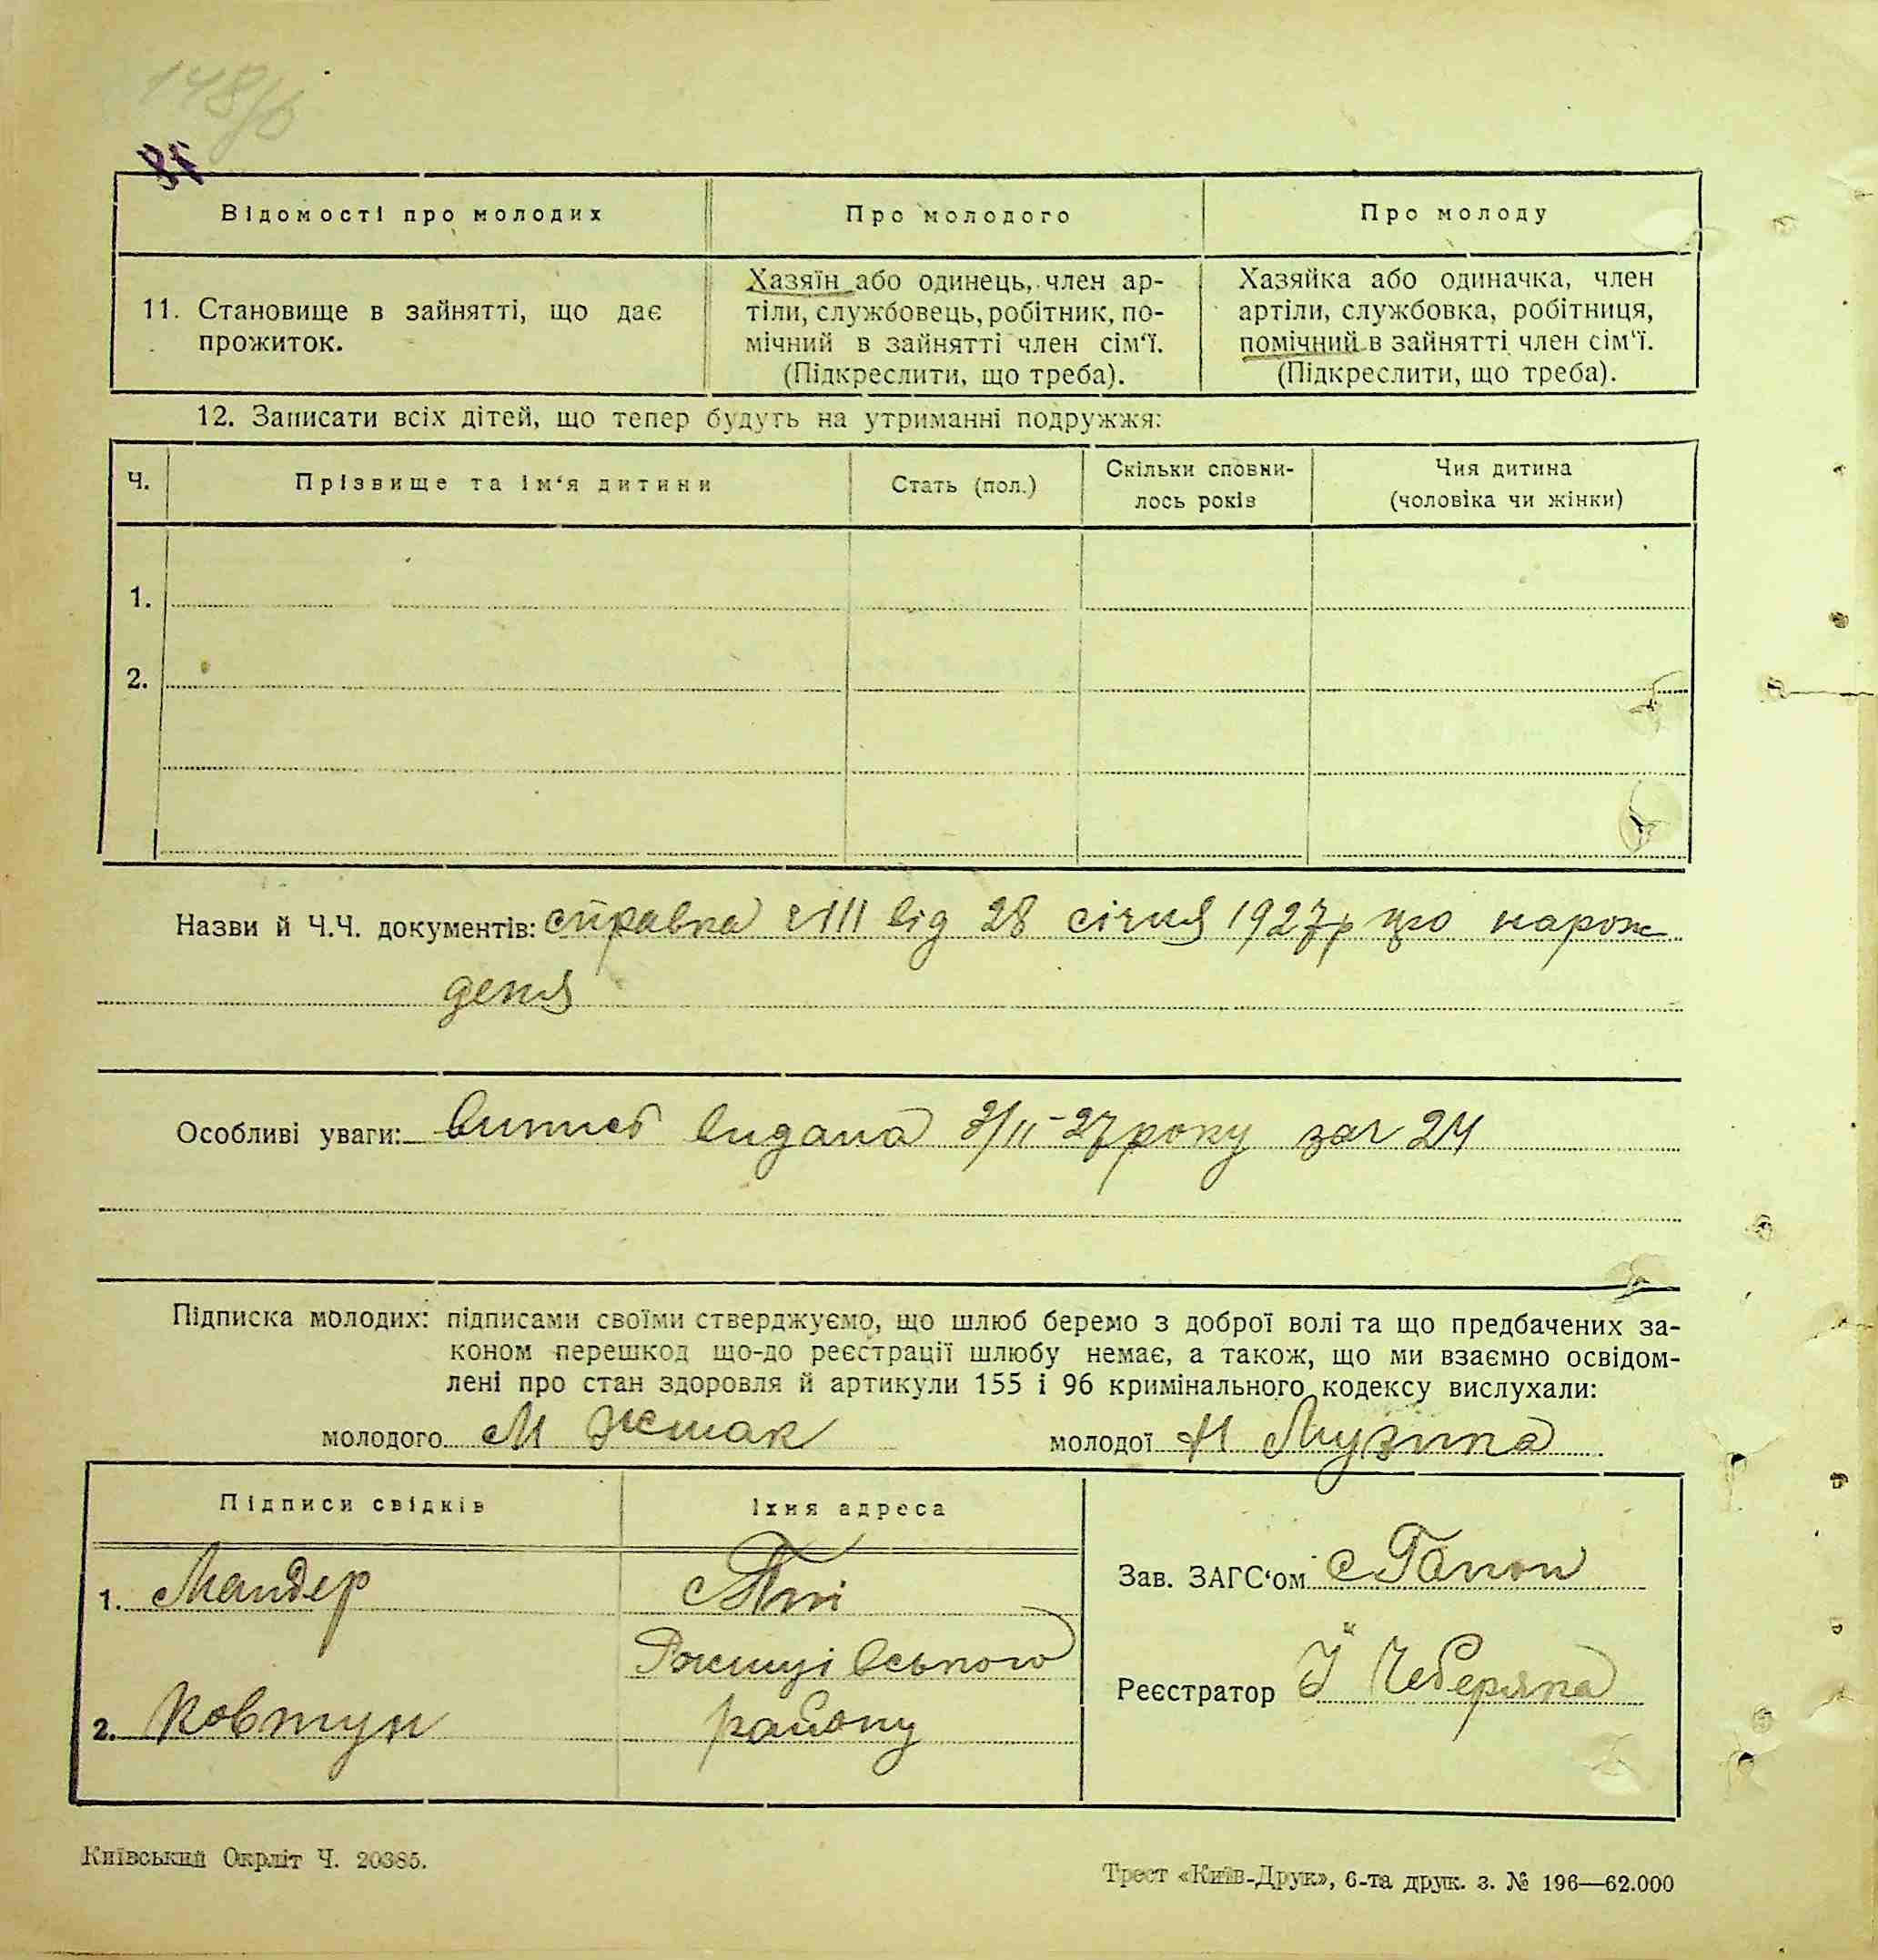 148/б
81
Відомості про молодих
Про молодого
Про молоду
11. Становище в зайнятті, що дає
прожиток.
Хазяїн або одинець, член ар-
тіли, службовець, робітник, по-
мічний в зайнятті член сім'ї.
(Підкреслити, що треба).
Хазяйка або одиначка, член
артіли, службовка, робітниця,
помічний в зайнятті член сім'ї.
(Підкреслити, що треба).
12. Записати всіх дітей, що тепер будуть на утриманні подружжя:
Ч.
Прізвище та ім'я дитини
Стать (пол.)
Скільки сповни-
лось років
Чия дитина
(чоловіка чи жінки)
1.
2.
Назви й Ч.Ч. документів: справка від 28 січня 1927р про нарож
деня
Особливі уваги: видана 3/II-27 року за 24
Підписка молодих: підписами своїми стверджуємо, що шлюб беремо з доброї волі та що предбачених за-
коном перешкод що-до реєстрації шлюбу немає, а також, що ми взаємно освідом-
лені про стан здоровля й артикули 155 і 96 кримінального кодексу вислухали:
молодого М
молодої Н Музика
Підписи свідків
Їхня адреса
1. Мандер
2. Ковтун
району
Зав. ЗАГС'ом Гапон
Реєстратор Й Чеберяка
Київський Окрліт Ч. 20385.
Трест «Київ-Друк», 6-та друк. з. № 196—62.000